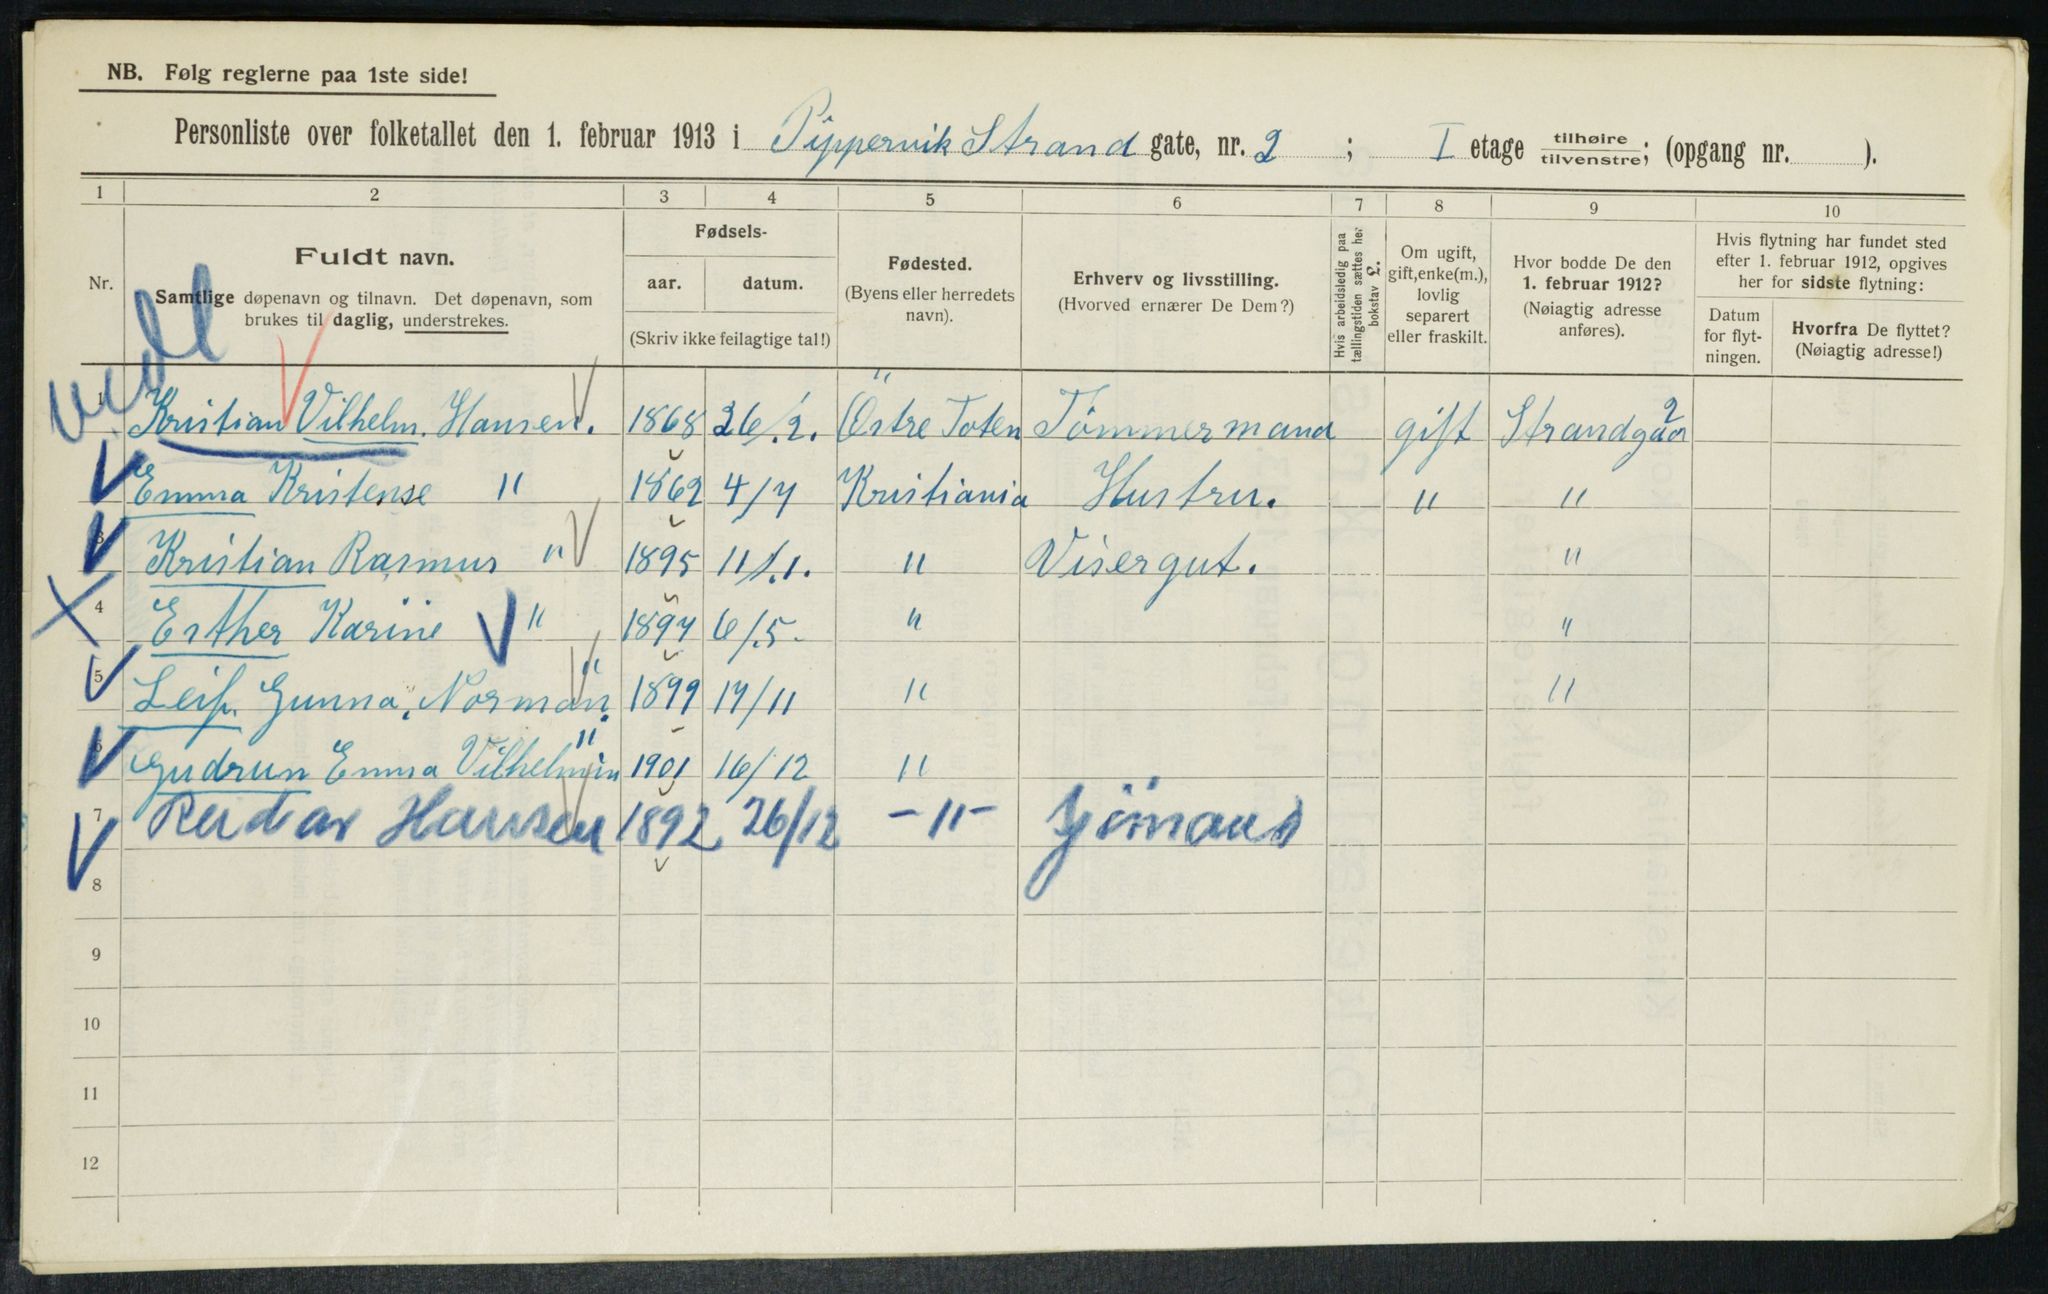 NB. Følg reglerne paa 1ste side!
Personliste over folketallet den 1. februar 1913 i Pippervik Strand gate, nr. 2 ; I etage tilhøire tilvenstre; (opgang nr. ).
1 2 3 4 5 6 7 8 9 10
Nr.
Fuldt navn.
Samtlige døpenavn og tilnavn. Det døpenavn, som
brukes til daglig, understrekes.
Fødsels-
aar. datum.
(Skriv ikke feilagtige tal!)
Fødested.
(Byens eller herredets
navn).
Erhverv og livsstilling.
(Hvorved ernærer De Dem?)
Hvis arbeidsledig paa
tællingstiden sættes her
bokstav L.
Om ugift,
gift, enke(m.),
lovlig
separert
eller fraskilt.
Hvor bodde De den
1. februar 1912?
(Nøiagtig adresse
anføres).
Hvis flytning har fundet sted
efter 1. februar 1912, opgives
her for sidste flytning:
Datum
for flyt-
ningen.
Hvorfra De flyttet?
(Nøiagtig adresse!)
1 Kristian Vilhelm. Hansen. 1868 26/2. Östre Toten Tömmermand gift Strandgad 2
Emma Kristense " 1862 4/7 Kristiania Hustru. " "
3 Kristian Rasmus " 1895 11/1. " Visergut. "
4 Esther Karine " 1897 6/5- " "
5 Leif. Gunna, Norman. " 1899 17/11 " "
6 Gudrun Emma Vilhelmin " 1901 16/12 "
7 Reidar Hansen 1892 26/12 -"- Sjömand
8
9
10
11
12